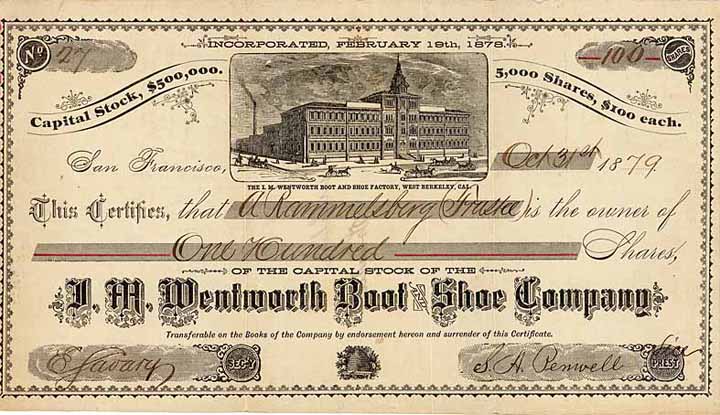 No 27
INCORPORATED, FEBRUARY 19th, 1878.
100 SHARES
Capital Stock, $500,000.
5,000 Shares, $100 each.
THE I. M. WENTWORTH BOOT AND SHOE FACTORY, WEST BERKELEY, CAL.
San Francisco, Oct 31st 1879.
This Certifies, that A Rammelsberg Trustee is the owner of
One Hundred Shares,
OF THE CAPITAL STOCK OF THE
I. M. Wentworth Boot AND Shoe Company
Transferable on the Books of the Company by endorsement hereon and surrender of this Certificate.
E Savary SEC'Y
S. H. Penwell Vice PREST